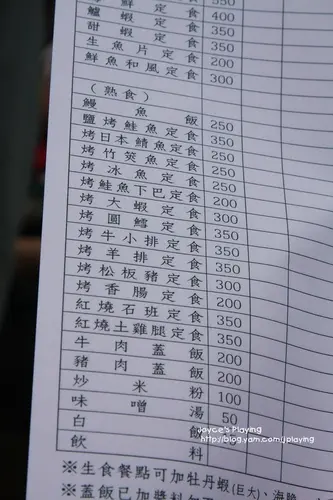 鮮 定食 350
鱸蝦定食 400
甜蝦定食 350
生魚片定食 200
鮮魚和風定食 300
(熟食)
鰻魚飯 250
鹽烤鮭魚定食 250
烤日本鯖魚定食 250
烤竹筴魚定食 250
烤冰魚定食 250
烤鮭魚下巴定食 200
烤大蝦定食 300
烤圓鱈定食 350
烤牛小排定食 350
烤羊排定食 350
烤松板豬定食 300
烤香腸定食 200
紅燒石班定食 350
紅燒土雞腿定食 350
牛肉蓋飯 200
豬肉蓋飯 200
炒米粉 100
味噌湯 50
白飯
飲料
Joyce's Playing
http://blog.yam.com/jplaying
※生食餐點可加牡丹蝦(巨大)、海膽
※蓋飯已加醬料